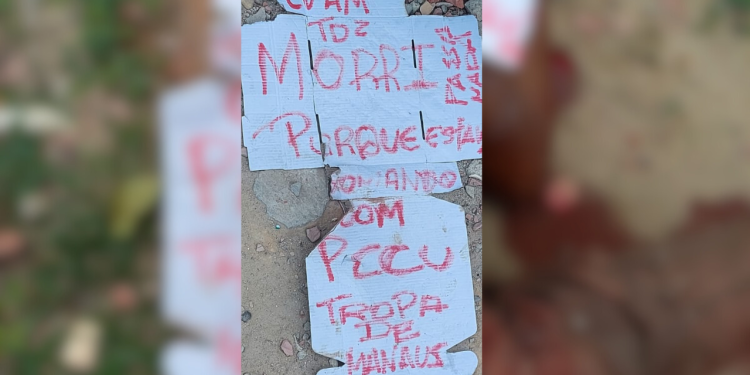 TD2
MORRI
PASSA
PORQUE ESTAV
ROMANDO
COM
PCCU
TROPA
DE
MANAUS